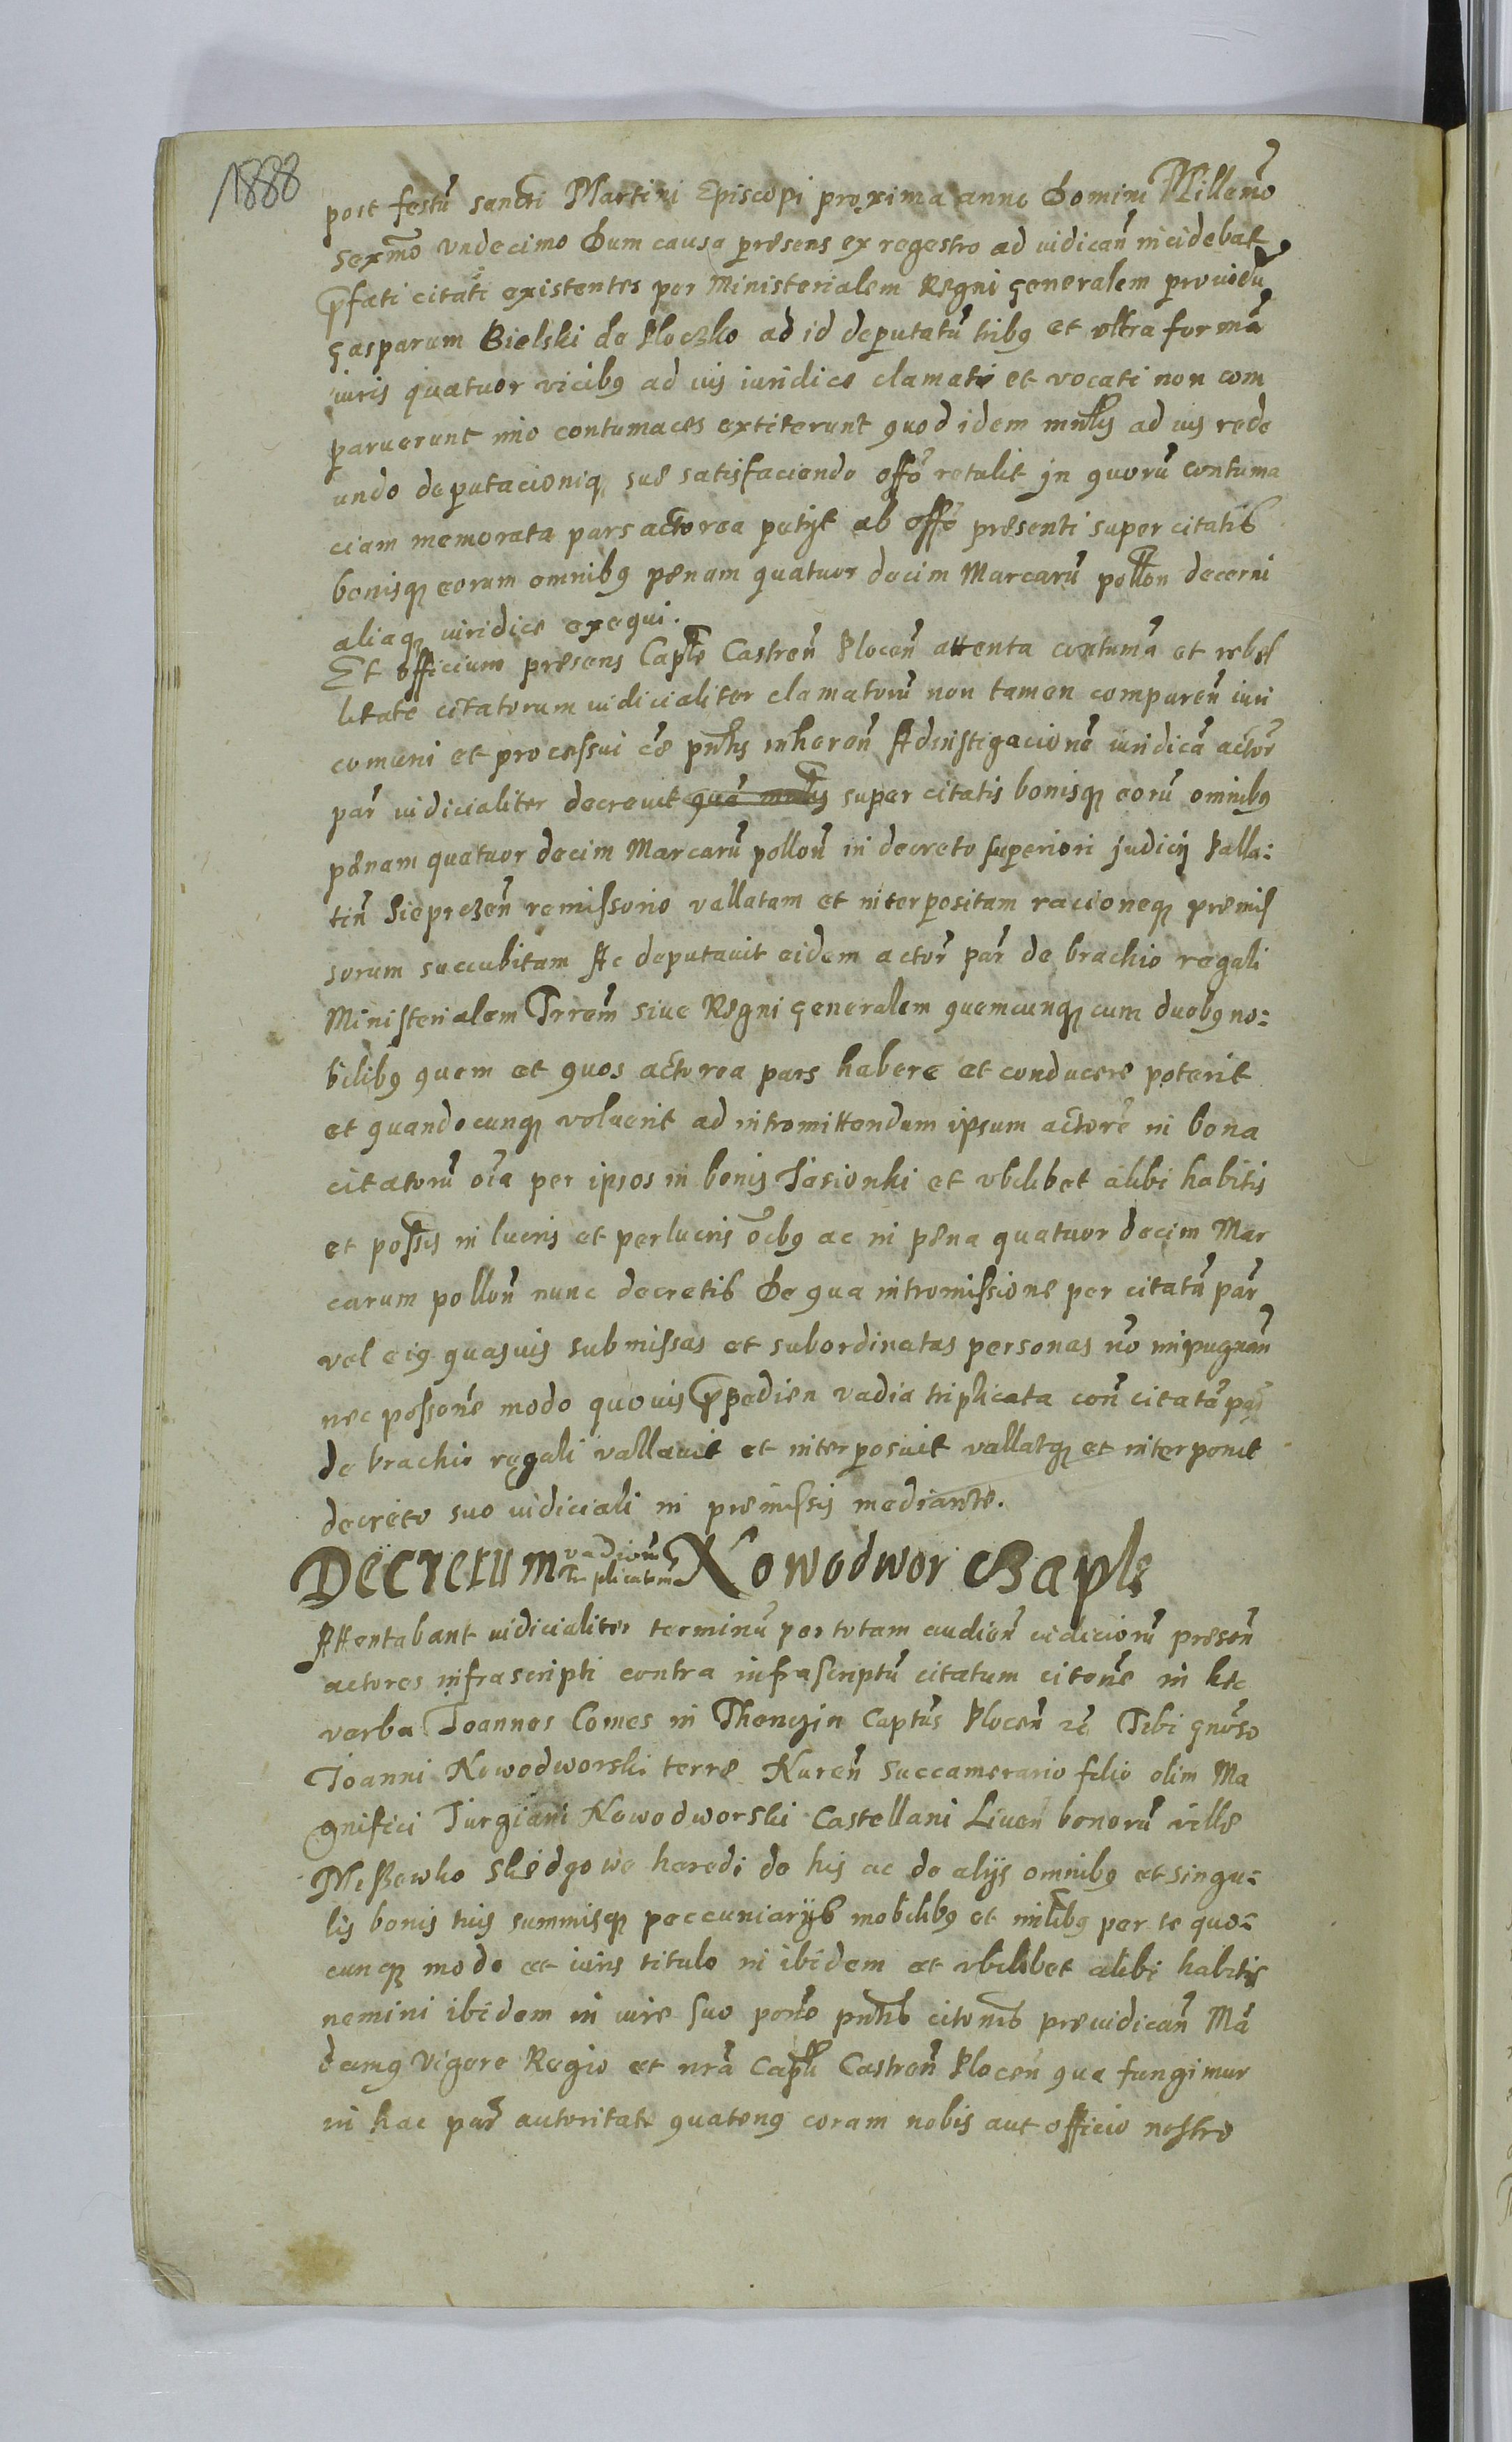 1888
post festũ sancti Martini Episcopi proxima anno Domini Millemo
Sexmo vndecimo Dum causa presens ex regestro ad iudicañ incidebat
p̃fati citati existentes per Ministerialem Regni generalem prouidũ
Gasparum Bielski de Ploczko ad id deputatũ tribꝰ et vltra formã
iuris quatuor vicibꝰ ad ius iuridice clamati et vocati non com
paruerunt imo contumaces extiterunt quod idem mnlis ad ius rede
undo deputacioniqꝫ sue satisfaciendo offo retulit in quorũ contuma
ciam memorata pars actorea petyt ab offo presenti super citatis
bonisqꝫ eorum omnibꝰ penam quatuor decim Marcarũ pollon decerni
aliaqꝫ iuridice exequi.
Et officium presens Caple Castreñ Ploceñ attenta contumã et rebel
litate citatorum iudicialiter clamatorũ non tamen compareñ iuri
comuni et processui cẽ pntis inhereñ Ad instigacionẽ iuridicã actor̃
par̃ iudicialiter decreuit super citatis bonisqꝫ eorũ omnibꝰ
penam quatuor decim Marcarũ polloñ in decreto superiori judicij Palla:
tiñ Sieprezeñ remissorio vallatam et interpositam racioneqꝫ premis
sorum succubitam Ac deputauit eidem actor̃ par̃ de brachio regali
Ministerialem Trrem̃ siue Regni generalem quemcunqꝫ cum duobꝰ no:
bilibꝰ quem et quos actorea pars habere et conducere poterit
et quandocunqꝫ voluerit ad intromittendum ipsum actorẽ in bona
citatorũ oĩa per ipsos in bonis Jasionki et vbilibet alibi habitis
et possis in lucris et perlucris oĩbꝰ ac in pena quatuor decim Mar
carum polloñ nunc decretis De qua intromissione per citatã par̃
vel eiꝰ quasuis submissas et subordinatas personas nõ impugnañ
nec possonẽ modo quouis p̃pedien vadia triplicata coñ citatã par̃
de brachio regali vallauit et interposuit vallatqꝫ et interponit
decreto suo iudiciali in premissis mediante.
Decretum vadiorũ triplicatorũ Nowodwor Caple
Attentabant iudicialiter terminũ per totam audieñ iudiciorũ preseñ
actores infrascripti contra infrascriptũ citatum citonẽ in hec
verba Joannes Comes in Thenczin Captũs Ploceñ rc̃ Tibi gnõso
Joanni Nowodworski terre Nureñ Succamerario filio olim Ma
gnifici Jurgiani Nowodworski Castellani Liueñ bonorũ ville
Miszewko Sledzowe heredi de his ac de alijs omnibꝰ et singu:
lis bonis tuis summisqꝫ peccuniarijs mobilibꝰ et imlibꝰ per te quo:
cunqꝫ modo et iuris titulo in ibidem et vbilibet alibi habitis
nemini ibidem in iure suo ponto pntis citonis preiudicañ Mã
damꝰ vigore Regio et nrã Capli Castreñ Ploceñ qua fungimur
in hac par̃ autoritate quatenꝰ coram nobis aut officio nostro